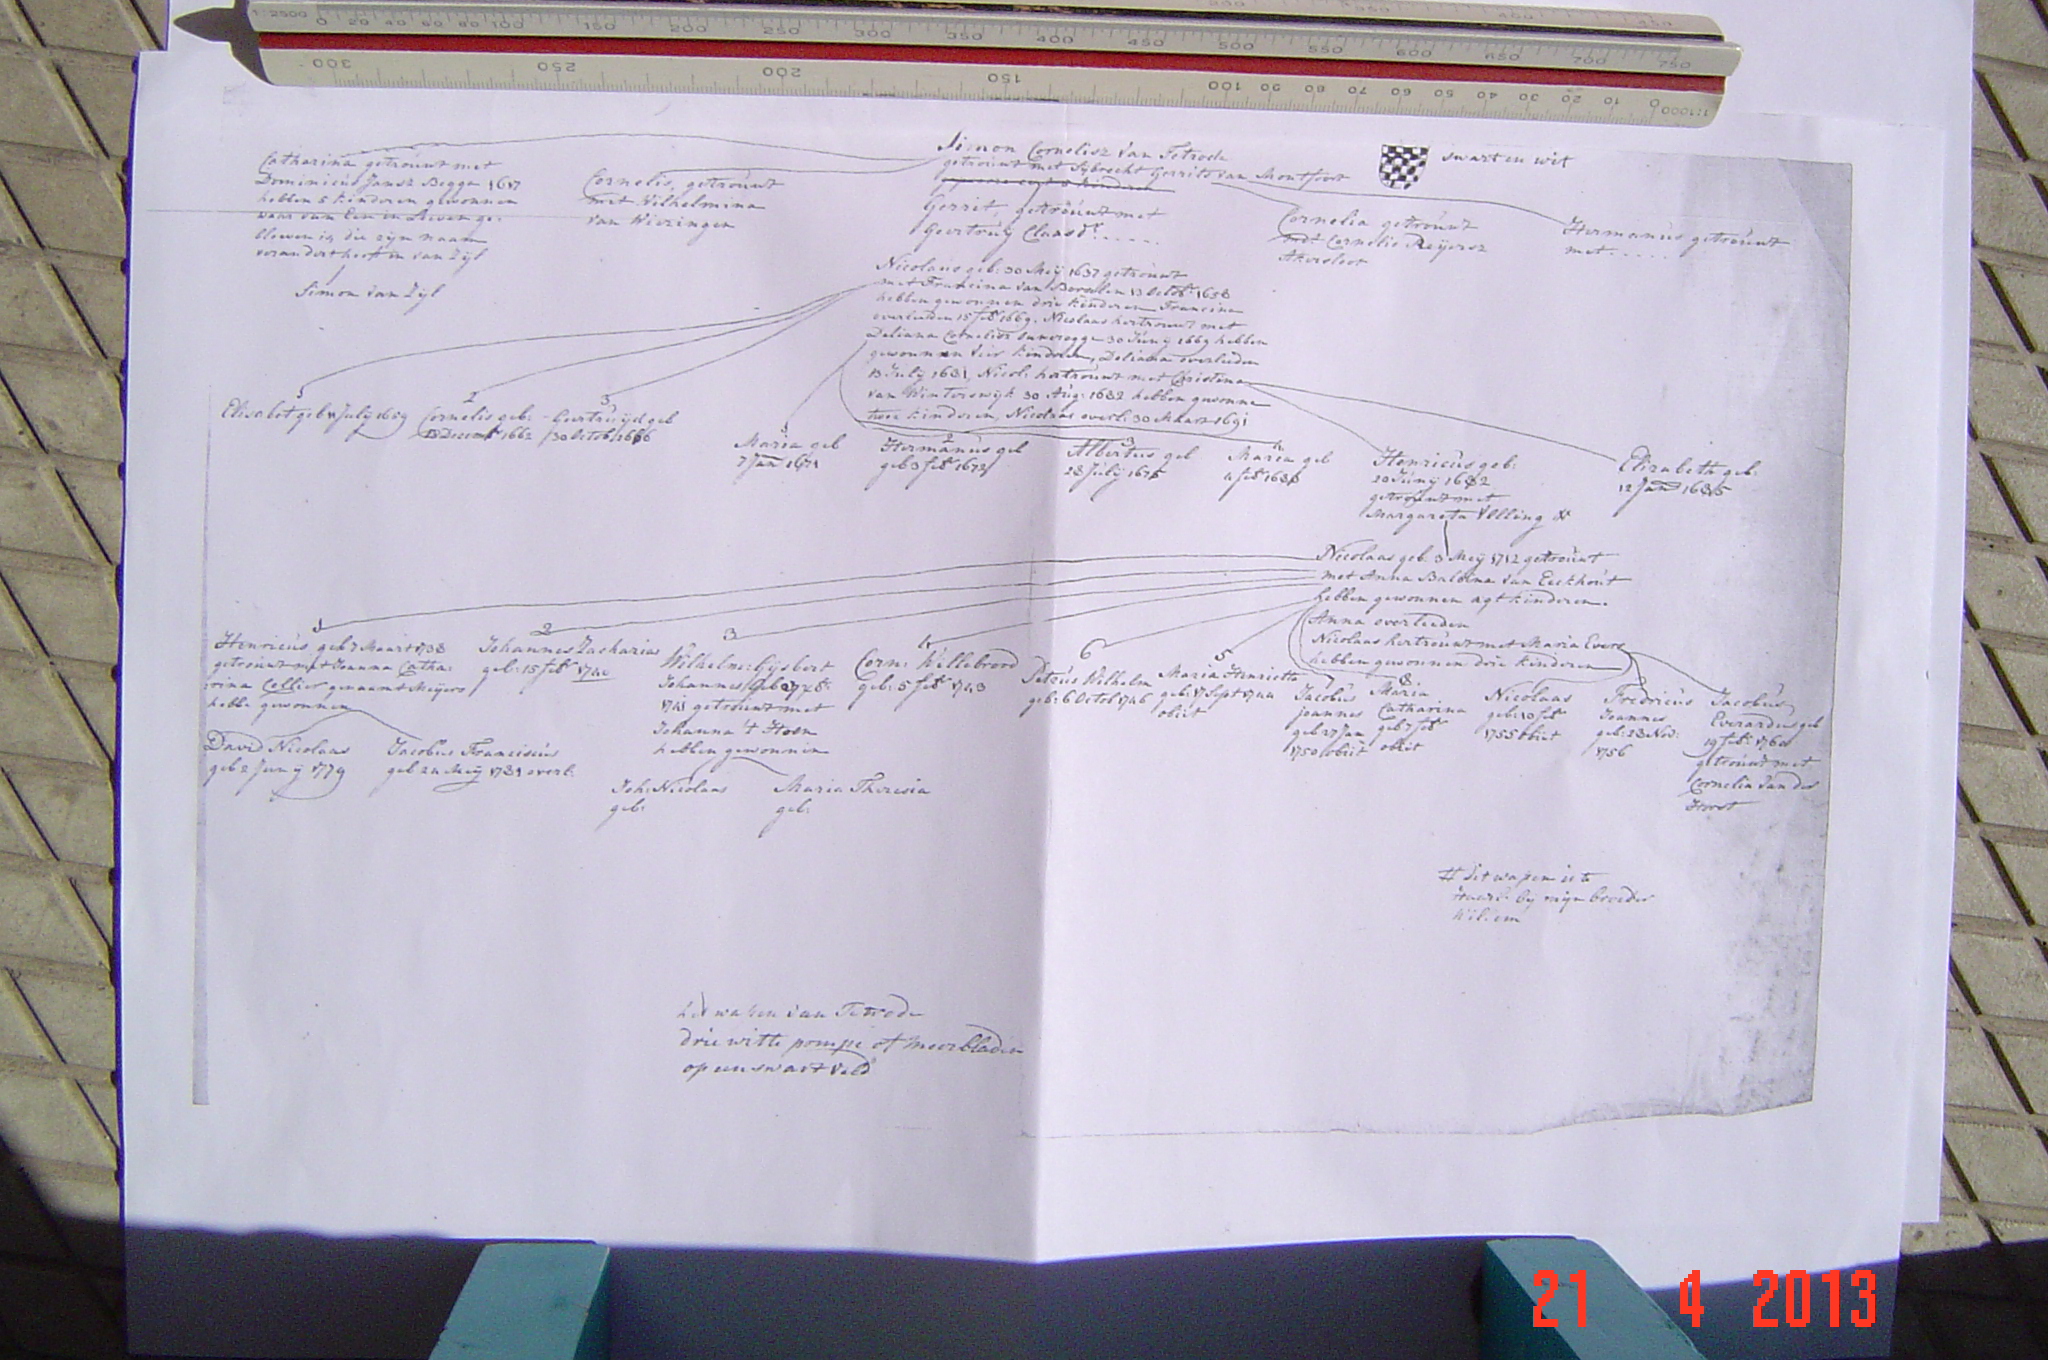 1:2500 0 20 40 60 80 100 150 200 250 300 350 400 450 500 550 600 650 700 750
300 250 200 150 100 90 80 70 60 50 40 30 20 10 0 1:1000
Simon Cornelisz van Tetrode
getrouwt met Sybrecht Gerrits van Montfoort
swart en wit
Catharina getrouwt met
Dominicus Jansz Begga 1617
hebben 5 kinderen gewonnen
waar van Een in Leeven ge-
bleven is, die zijn naam
verandert heeft in van Zijl
Simon van Zijl
Cornelis, getrouwt
met Wilhelmina
van Wieringen
Gerrit, getrouwt met
Geertruÿ Claasdr......
Cornelia getrouwt
met Cornelis Reijersz
Akersloot
Hermanus getrouwt
met.....
Nicolaus geb: 30 Meÿ 1637 getrouwt
met Francina van Borselen 13 Octobr 1658
hebben gewonnen drie kinderen Francina
overleeden 15 febr 1669. Nicolaas hertrouwt met
Deliana Cornelis 30 Junÿ 1669 hebben
gewonnen vier kinderen, Deliana overleeden
13 July 1681, Nicol: hertrouwt met Christina
van Winterswyk 30 Aug: 1682 hebben gewonne
twee kinderen, Nicolaas overl: 30 Maart 1691
1
Elisabet geb July 1659
2
Cornelis geb:
13 Decemb 1662
3
Geertruijd geb
30 Octob 1666
1
Maria geb
7 Jan 1671
2
Hermanus geb
geb 3 febr 1673
3
Albertus geb
28 Julÿ 1675
4
Maria geb
4 febr 1680
Henricus geb:
20 Junÿ 1682
getrouwt met
Margareta Ulling #
Elizabeth geb:
12 Jan 1685
Nicolaas geb. 3 Meÿ 1712 getrouwt
met Anna Balduina van Eeckhout
hebben gewonnen agt kinderen.
Anna overleeden
Nicolaas hertrouwt met Maria Evers
hebben gewonnen drie kinderen
1
Henricus geb 7 Maart 1738
getrouwt met Joanna Catha-
rina Collier genaamt Meijers
hebbe gewonnen
2
Johannes Zacharias
geb: 15 febr 1740
3
Wilhelm: Gijsbert
Johannes geb
1741 getrouwt met
Johanna 't Hoen
hebben gewonnen
4
Corn: Willebrord
geb: 5 febr 1743
6
Petrus Wilhelm
geb: 6 Octob 1746
5
Maria Henrietta
geb: 17 Sept 1744
obiit
Jacobus
Joannes
geb 27 Jan
1750 obiit
8
Maria
Catharina
geb 7 febr
obiit
Nicolaas
geb: 10 febr
1755 obiit
Fredricus
Joannes
geb: 23 Nov:
1756
Jacobus
Everardus geb
19 febr: 1760
getrouwt met
Cornelia van der
Horst
David Nicolaas
geb 2 Junÿ 1779
Jacobus Franciscus
geb 24 Meÿ 1781 overl:
Joh: Nicolaas
geb:
Maria Theresia
geb:
# dit wapen is te
by mijn broeder
Willem
het wapen van Tetrode
drie witte pompe of meerbladen
op een swart veld
21 4 2013